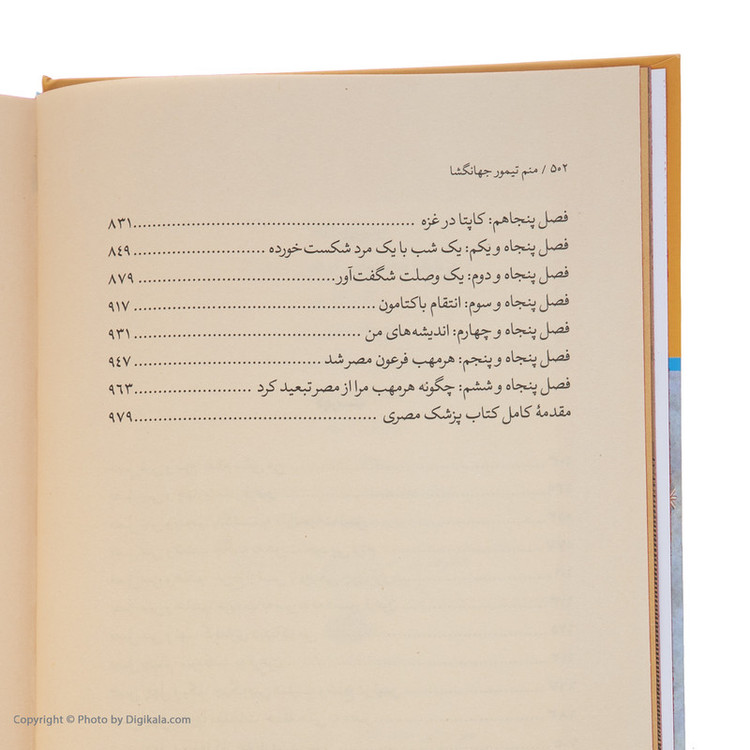 ۵۰۲ / منم تیمور جهانگشا
فصل پنجاهم: کاپتا در غزه ............................................................ ۸۳۱
فصل پنجاه و یکم: یک شب با یک مرد شکست‌خورده ............................ ۸۴۹
فصل پنجاه و دوم: یک وصلت شگفت‌آور .......................................... ۸۷۹
فصل پنجاه و سوم: انتقام باکتامون .................................................... ۹۱۷
فصل پنجاه و چهارم: اندیشه‌های من ................................................ ۹۳۱
فصل پنجاه و پنجم: هرمهب فرعون مصر شد ........................................ ۹۴۷
فصل پنجاه و ششم: چگونه هرمهب مرا از مصر تبعید کرد ......................... ۹۶۳
مقدمهٔ کامل کتاب پزشک مصری .................................................... ۹۷۹
Copyright © Photo by Digikala.com